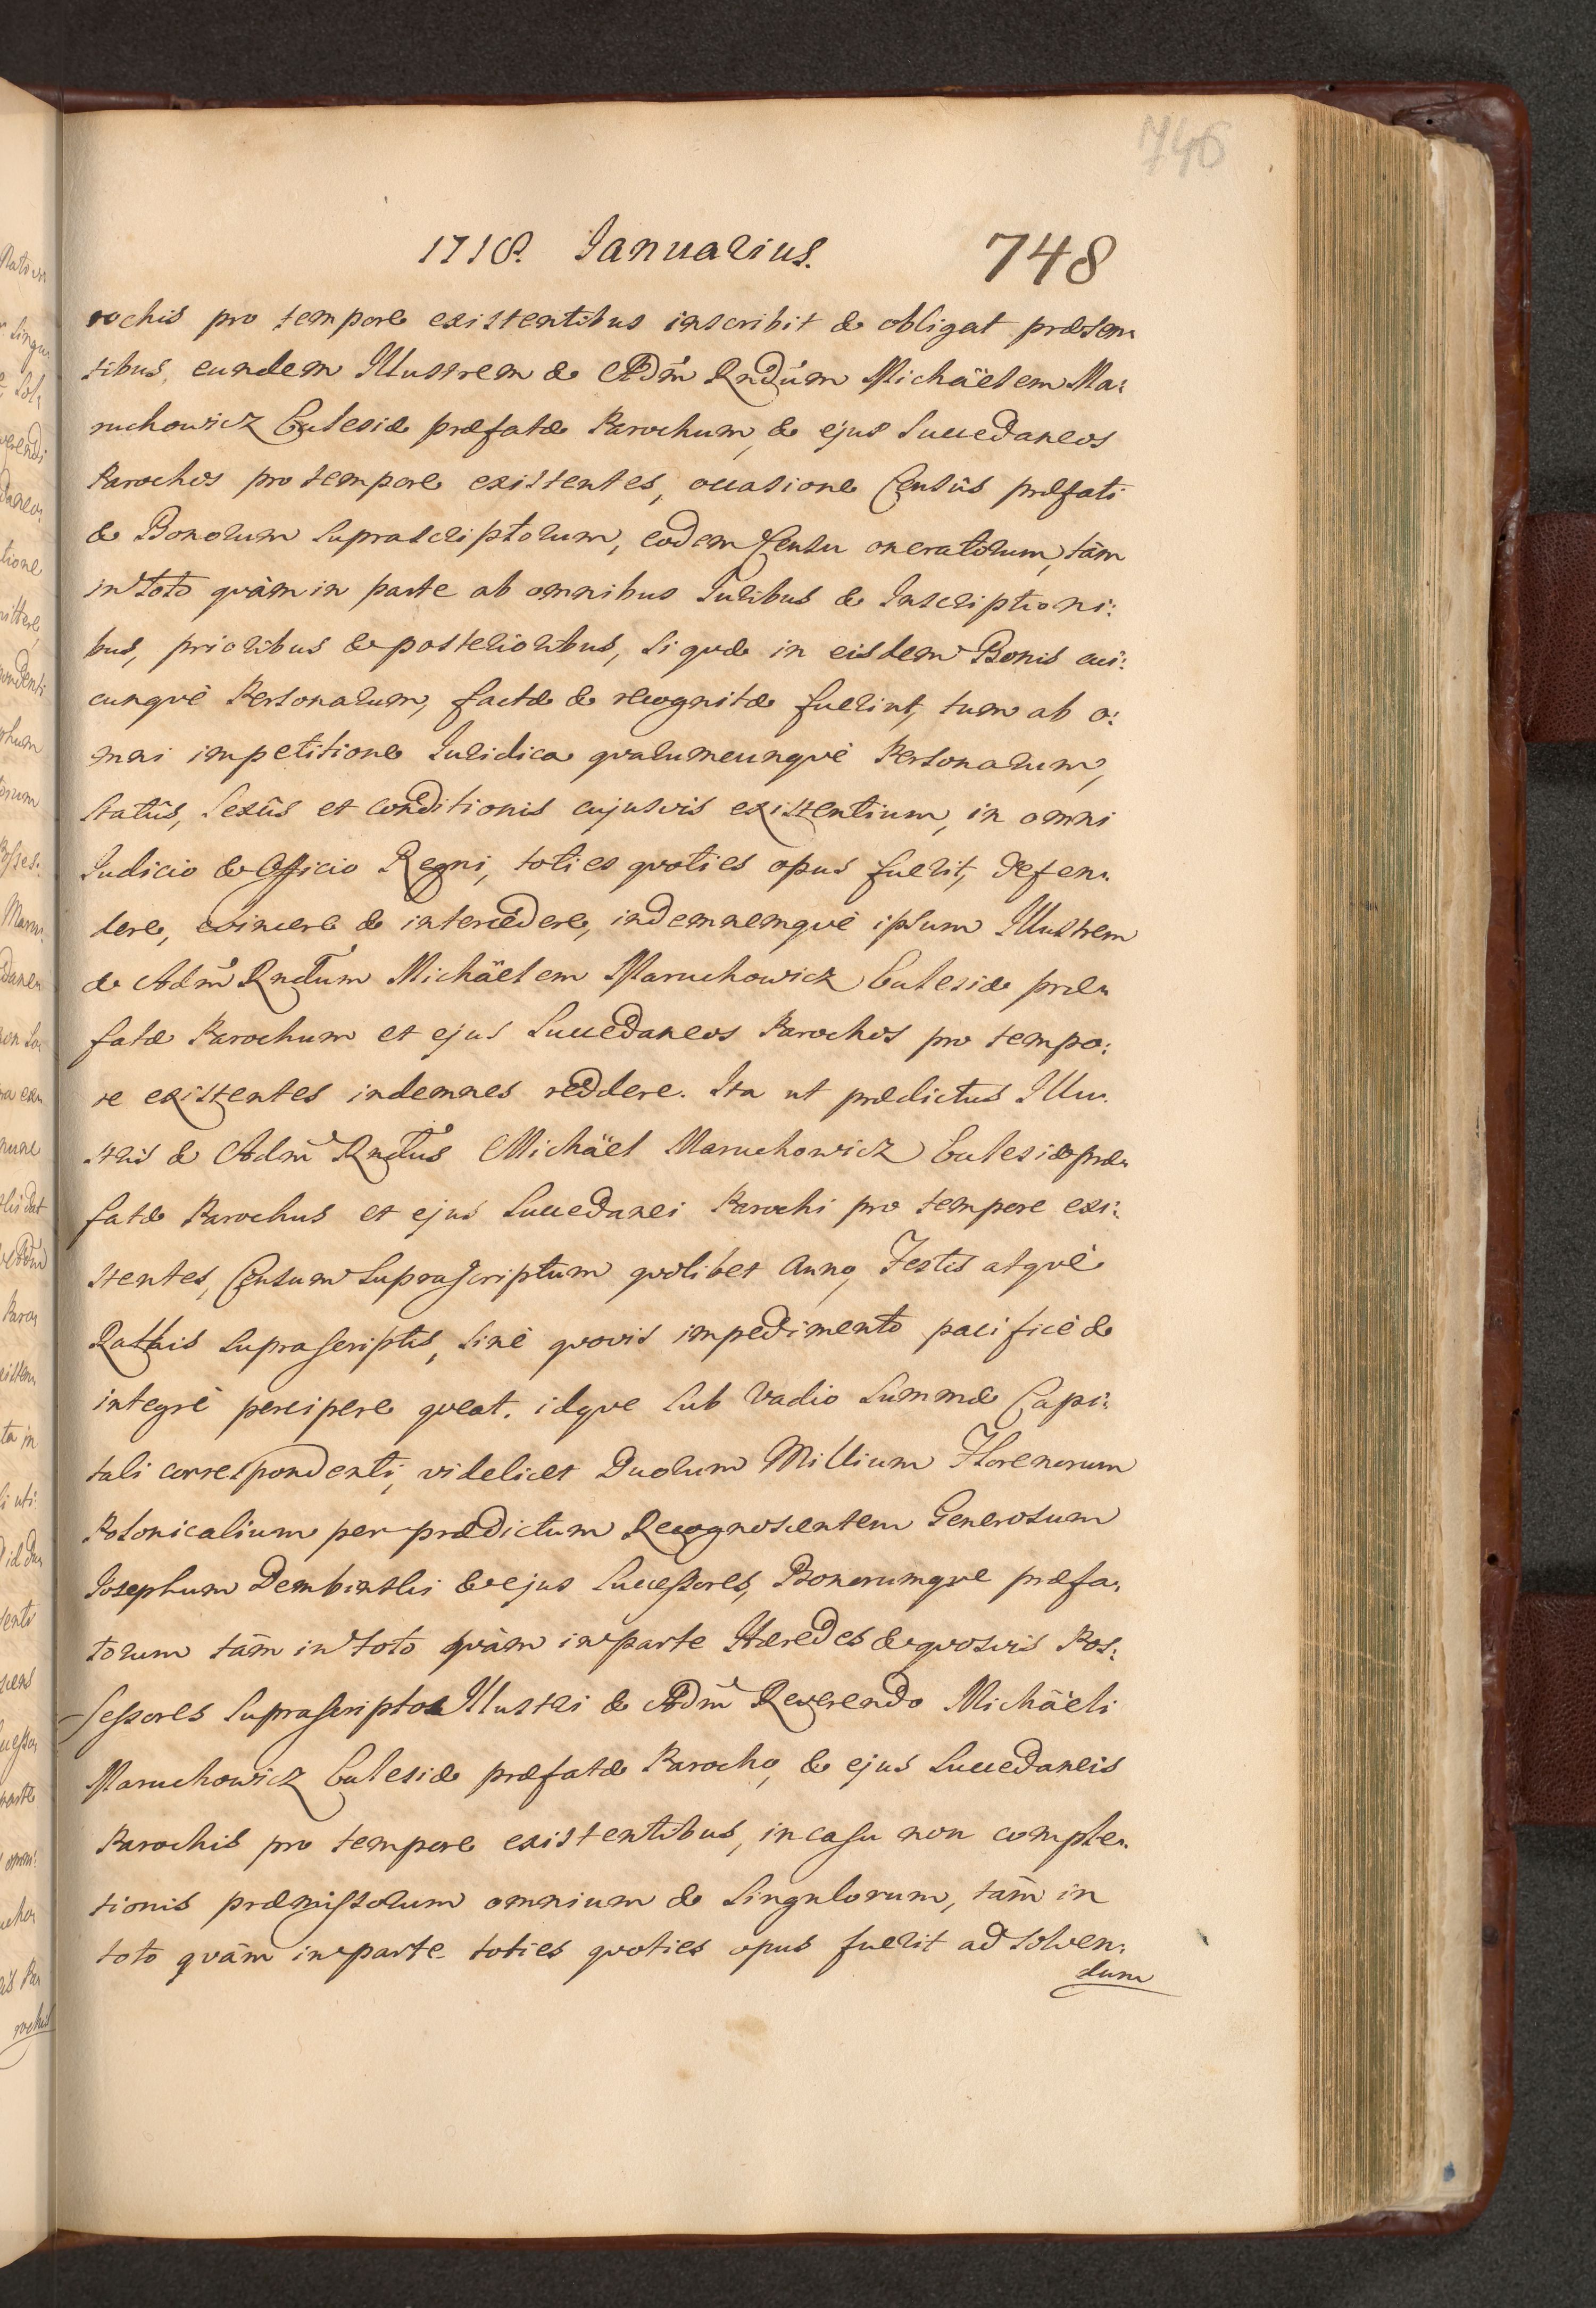 746
1718. Ianuarius. 748
rochis pro tempore existentibus inscribit & obligat præsen:
tibus, eundem Illustrem & Adm̃ Rndũm Michäelem Ma:
ruchowicz Ecclesiæ præfatæ Parochum, & ejus Succedaneos
Parochos pro tempore existentes, occasione Censûs præfati
& Bonorum suprascriptorum, eodem Censu oneratorum, tàm
in toto quàm in parte ab omnibus Juribus & Inscriptioni:
bus, prioribus & posterioribus, si quæ in eisdem Bonis cui:
cunquè Personarum, factæ & recognitæ fuerint, tum ab o:
mni impetitione Iuridica quarumcunquè Personarum,
Statûs, Sexûs et conditionis cujusvis existentium, in omni
Iudicio & Officio Regni, toties quoties opus fuerit, defen:
dere, evincere & intercedere, indemnemquè ipsum Illustrem
& Adm̃ Rndũm Michäelem Maruchowicz Ecclesiæ præ:
fatæ Parochum et ejus Succedaneos Parochos pro tempo:
re existentes indemnes reddere. Ita ut prædictus Illu:
stris & Adm̃ Rndũs Michäel Maruchowicz Ecclesiæ præ:
fatæ Parochus et ejus Succedanei Parochi pro tempore exi:
stentes, Censum Suprascriptum quolibet Anno, Festis atquè
Rathis suprascriptis, sinè quovis impedimento pacificè &
integrè percipere queat. idque sub Vadio Summæ Capi:
tali correspondenti, videlicet Duorum Millium Florenorum
Polonicalium per prædictum Recognoscentem Generosum
Iosephum Dembinski & ejus Successores, Bonorumque præfa:
torum tàm in toto quàm in parte Hæredes & quosvis Pos:
sessores suprascriptos Illustri & Adm̃ Reverendo Michäeli
Maruchowicz Ecclesiæ præfatæ Parocho, & ejus Succedaneis
Parochis pro tempore existentibus, in casu non comple:
tionis præmissorum omnium & singulorum, tàm in
toto quàm in parte toties quoties opus fuerit ad solven:
dum